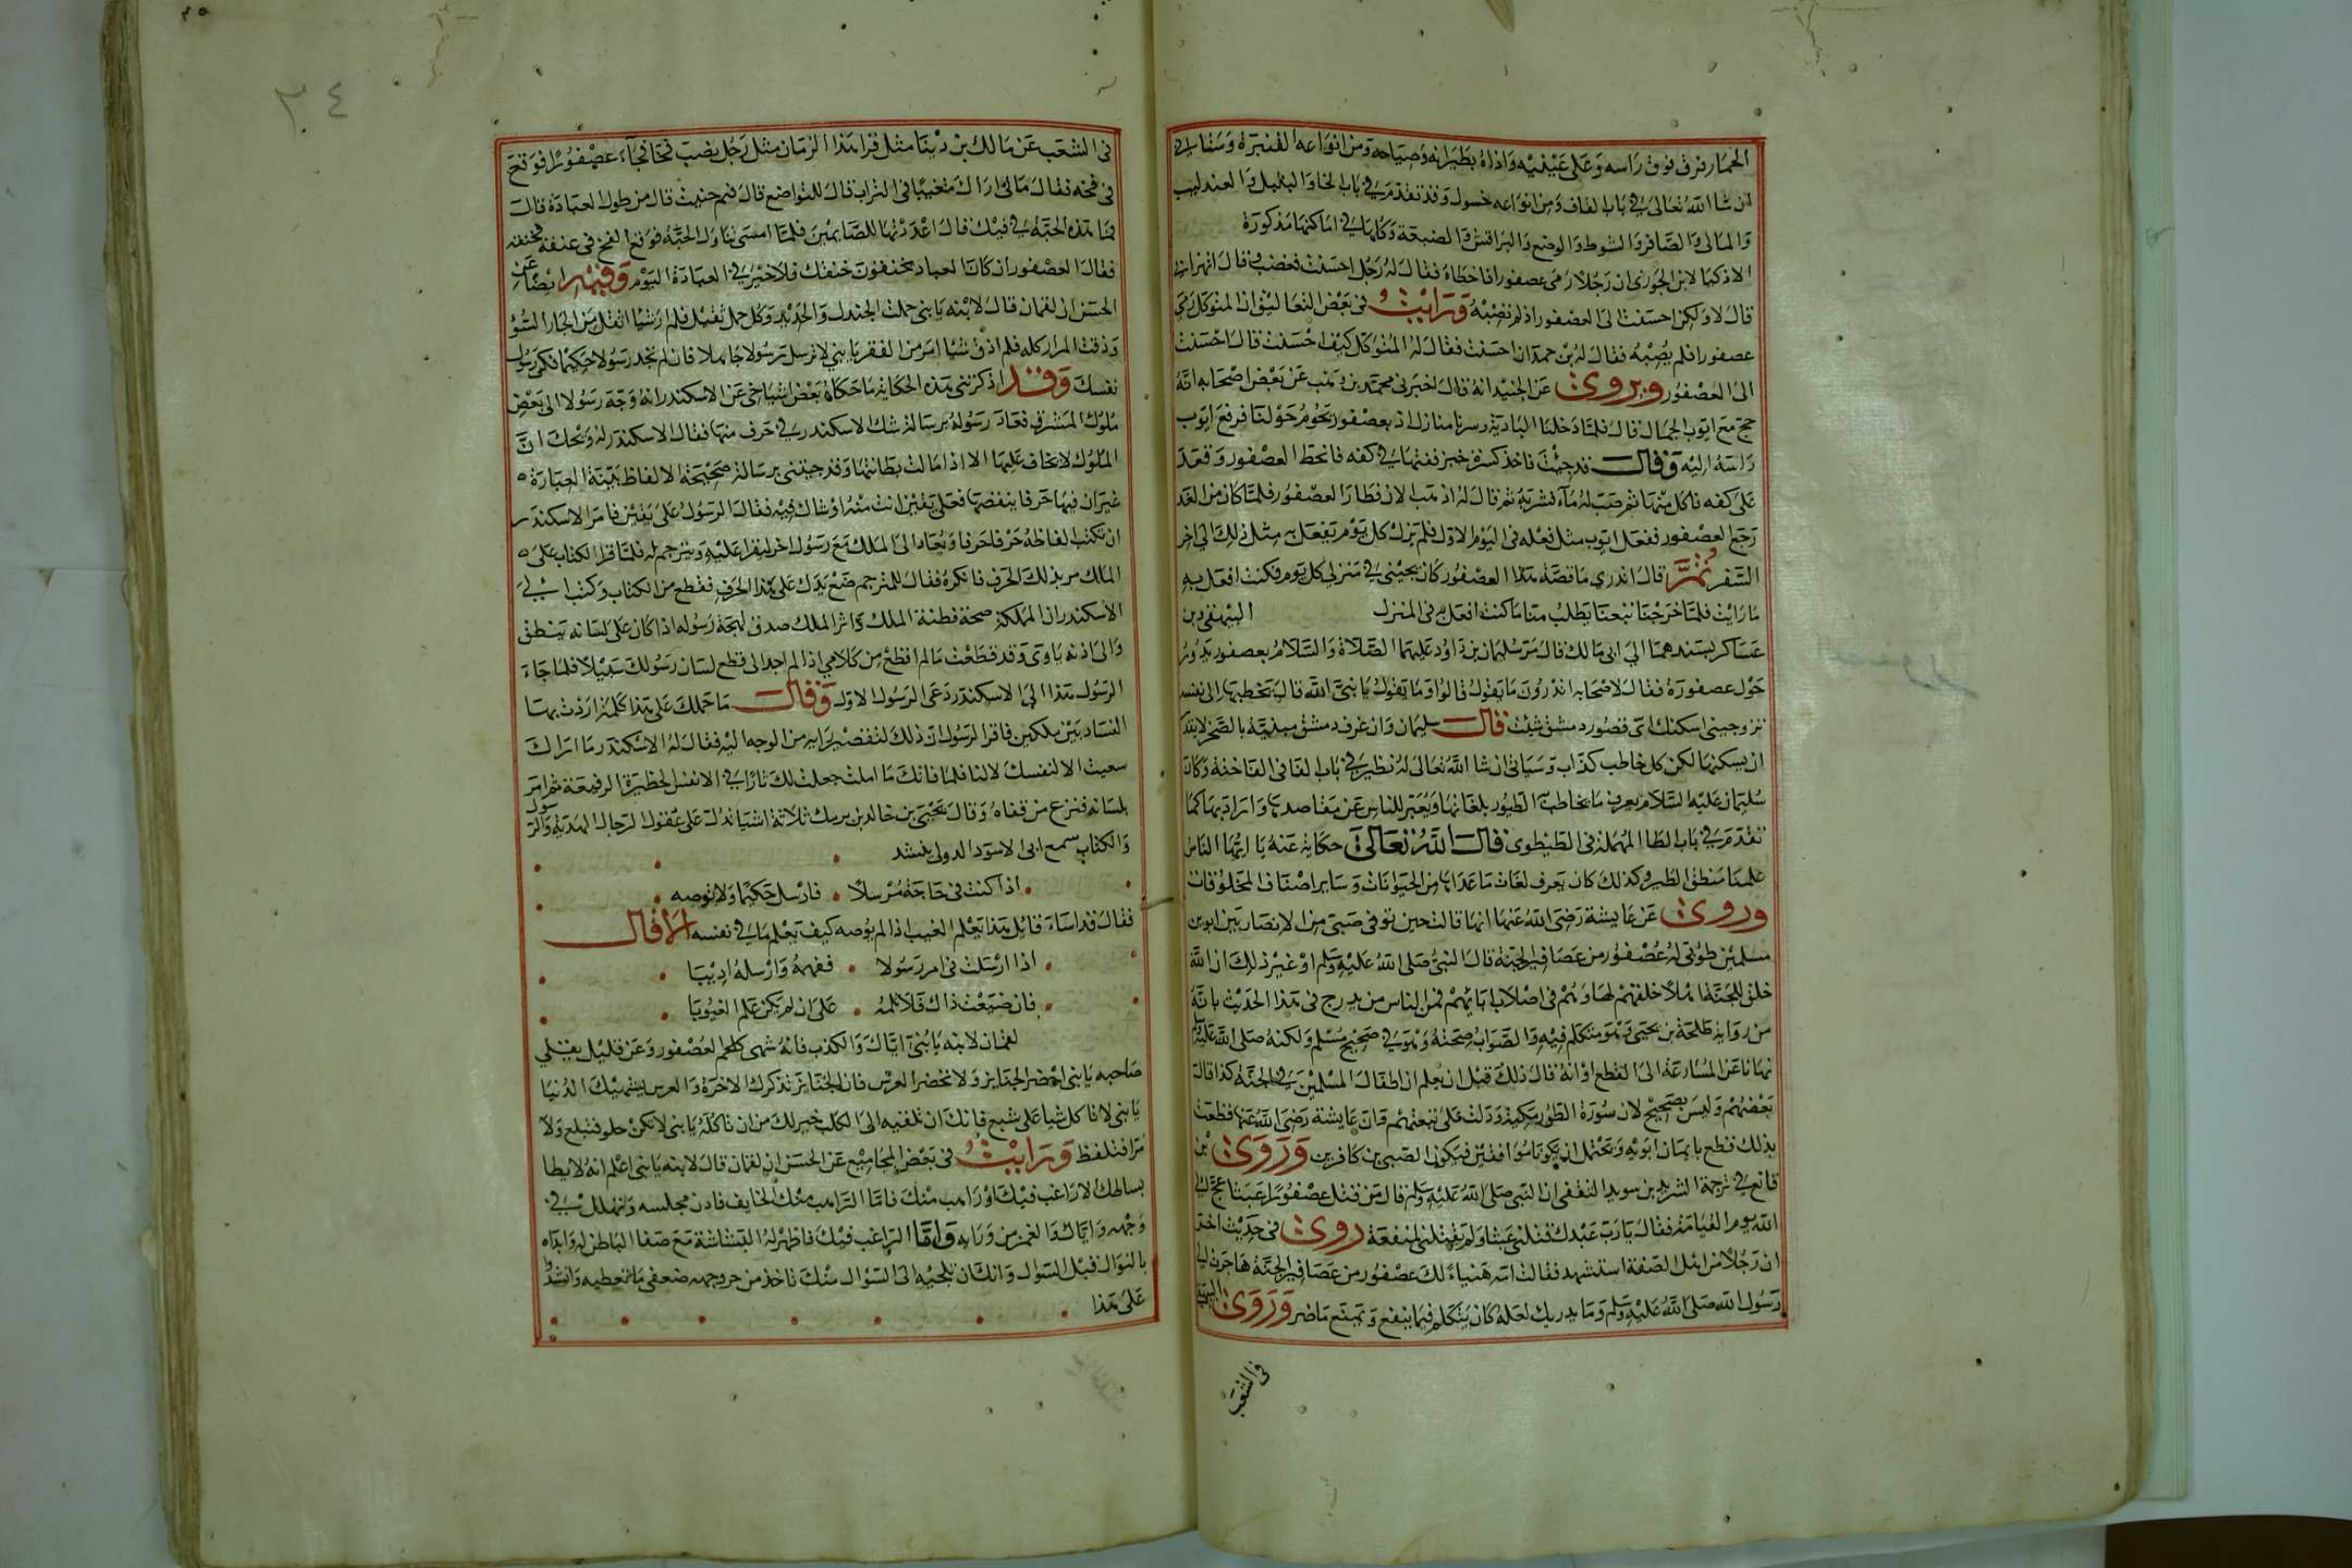 الحمار فرق فوق راسه وعلى عينيه واذاه بطيرانه وصياحه ومن انواعه القنبرة وستاتي
ان شا الله تعالى في باب القاف ومن انواعه حسول وقد تقدم في باب الحا والبلبل والعندليب
والمالك والصافر والشوط والوضع والبراقش والضبعة وكلها في اماكنها مذكورة
الاذكيا لابن الجوزي ان رجلا رمى عصفورا فاخطاه فقال له رجل احسنت فغضب فقال اتهزا بي
قال لا ولكن احسنت الى العصفور اذ لم تصبه ورايت في بعض التعاليق ان المتوكل رمى
عصفورا فلم يصبه فقال له بن حمدان احسنت فقال له المتوكل كيف احسنت قال احسنت
الى العصفور ويروى عن الجنيد انه قال اخبرني محمد بن وهب عن بعض اصحابه انه
حج مع ايوب الجمال قال فلما دخلنا البادية وسرنا منازل اذ بعصفور يحوم حولنا فرفع ايوب
راسه اليه وقال قد جيت فاخذ كسرة خبز ففتها في كفه فانحط العصفور وقعد
على كفه فاكل منها ثم صب له ماء فشربه ثم قال له اذهب الان فطار العصفور فلما كان من الغد
رجع العصفور ففعل ايوب مثل فعله في اليوم الاول فلم يزل كل يوم يفعل به مثل ذلك الى اخر
السفر ثم قال اتدري ما قصة هذا العصفور كان يجيني في منزلي كل يوم فكنت افعل به
ما رايت فلما خرجنا تبعنا يطلب منا ما كنت افعل به في المنزل البيهقي وبن
عساكر بسندهما الى ابي مالك قال مر سليمان بن داود عليهما الصلاة والسلام بعصفور يدور
حول عصفورة فقال لاصحابه اتدرون ما يقول قالوا وما يقول يا نبي الله قال يخطبها الى نفسه
تزوجيني اسكنك اي قصور دمشق شيت قال سليمان وان غرف دمشق مبنية بالصخر لا يقدر
ان يسكنها لكن كل خاطب كذاب وسياتي ان شا الله تعالى له نظير في باب الفا في الفاختة وكان
سليمان عليه السلام يعرف ما يتخاطب الطيور بلغاتها ويعبر للناس عن مقاصدها وارادتها كما
تقدم في باب الطا المهملة في الطيطوى قال الله تعالى حكاية عنه يا ايها الناس
علمنا منطق الطير وكذلك كان يعرف لغات ما عداها من الحيوانات وساير اصناف المخلوقات
وروى عن عايشة رضي الله عنها انها قالت حين توفي صبي من الانصار بين ابوين
مسلمين طوبى له عصفور من عصافير الجنة قال النبي صلى الله عليه وسلم او غير ذلك ان الله
خلق للجنة اهلا خلقهم لها وهم في اصلاب ابايهم فمن الناس من يدرج في هذا الحديث بانه
من رواية طلحة بن يحيى وهو متكلم فيه والصواب صحته وهو في صحيح مسلم ولكنه صلى الله عليه وسلم
نهانا عن المسارعة الى القطع او انه قال ذلك قبل ان يعلم ان اطفال المسلمين في الجنة كذا قاله
بعضهم وليس بصحيح لان سورة الطور مكية ودلت على تبعيتهم وان عايشة رضي الله عنها قطعت
بذلك فقطع بايمان ابويه ويحتمل ان يكونا سوا فقين فيكون الصبي بن كافرين وروى بن
قانع في ترجمة الشريد بن سويد الثقفي ان النبي صلى الله عليه وسلم قال من قتل عصفورا عبثا عج الى
الله يوم القيامة فقال يا رب عبدك قتلني عبثا ولم يقتلني لمنفعة روى في حديث اخر
ان رجلا من اهل الصفة استشهد فقالت امه هنياء لك عصفور من عصافير الجنة هاجرت الى
رسول الله صلى الله عليه وسلم وما يدريك لعله كان يتكلم فيما ينفع ويمنع ما ضر وروى البيهقي
في الشعب
٢٤
في الشعب عن مالك بن دينار مثل قرا هذا الزمان مثل رجل نصب فخا فجاء عصفورا فوقع
في فخه فقال ما لي اراك متغيبا في التراب قال للتواضع قال فمم حنيت قال من طول العبادة قال
فما هذه الحبة في فيك قال اعددتها للصايمين فلما امسى تناول الحبة فوقع الفخ في عنقه فخنقه
فقال العصفور ان كان العباد يخنقون خنقك فلا خير في العبادة اليوم وفيه ايضا عن
الحسن ان لقمان قال لابنه يا بني حملت الجندل والحديد وكل حمل ثقيل فلم ار شيا اثقل من الجار السوء
وذقت المرار كله فلم اذق شيا امر من الفقر يا بني لا ترسل رسولا جاهلا فان لم تجد رسولا حكيما فكن رسول
نفسك وقد اذكرتني هذه الحكاية ما حكاه بعض اشياخي عن الاسكندر انه وجه رسولا الى بعض
ملوك المشرق فعاد رسوله برسالة شك الاسكندر في حرف منها فقال الاسكندر له ويحك ان
الملوك لا تخاف عليها الا اذا مالت بطانتها وقد جيتني برسالة صحيحة الالفاظ بينة العبارة
غير ان فيها حرفا ينقضها فعلى يقين انت منه او شاك فيه فقال الرسول على يقين فامر الاسكندر
ان تكتب الفاظه حرفا حرفا ويعاد الى الملك مع رسول اخر ليقرا عليه ويترجم له فلما قرا الكتاب على
الملك مر بذلك الحرف فانكره فقال للمترجم ضع يدك على هذا الحرف فقطع من الكتاب وكتب الى
الاسكندر ان المملكة صحة فطنة الملك واثر الملك صدق لهجة رسوله اذا كان على لسانه ينطق
والى اذنه ياوى وقد قطعت ما لم اقطع من كلامي اذ لم اجد الى قطع لسان رسولك سبيلا فلما جاء
الرسول هذا الى الاسكندر دعى الرسول الاول وقال ما حملك على هذا كلمة اردت بها
الفساد بين ملكين فاقر الرسول ان ذلك لتقصير راه من الوجه اليه فقال له الاسكندر ما اراك
سعيت الا لنفسك لا لنا فلما فاتك ما املت جعلت لك ثارا في الانفس الخطيرة الرفيعة ثم امر
بلسانه فنزع من قفاه وقال يحيى بن خالد بن برمك ثلاثة اشيا تدل على عقول الرجال الهدية والرسول
والكتاب سمع ابي الاسود الدولي ينشد
اذا كنت في حاجة مرسلا فارسل حكيما ولا توصه
فقال قد اساء قايل هذا يعلم الغيب اذا لم يوصه كيف يعلم ما في نفسه الا قال
اذا ارسلت في امر رسولا ففهمه وارسله اديبا
فان ضيعت ذاك فلا تلمه على ان لم يكن علم الغيوبا
لقمان لابنه يا بني اياك والكذب فانه شهي كلحم العصفور وعن قليل يقلي
صاحبه يا بني احضر الجنايز ولا تحضر العرس فان الجنايز تذكرك الاخرة والعرس يشهيك الدنيا
يا بني لا تاكل شيا على شبع فانك ان تلقيه الى الكلب خير لك من ان تاكله يا بني لا تكن حلو فتبلع ولا
مرا فتلفظ ورايت في بعض المجاميع عن الحسن ان لقمان قال لابنه يا بني اعلم انه لا يطا
بساطك الا راغب فيك او راهب منك فاما الراهب منك الخايف فادن مجلسه وتهلل في
وجهه واياك والغمز من ورايه واما الراغب فيك فاظهر له البشاشة مع صفا الباطن له وابداه
بالنوال قبل السوال وانك ان تلجيه الى السوال منك تاخذ من حر وجهه ضعفي ما تعطيه وانشدوا
على هذا